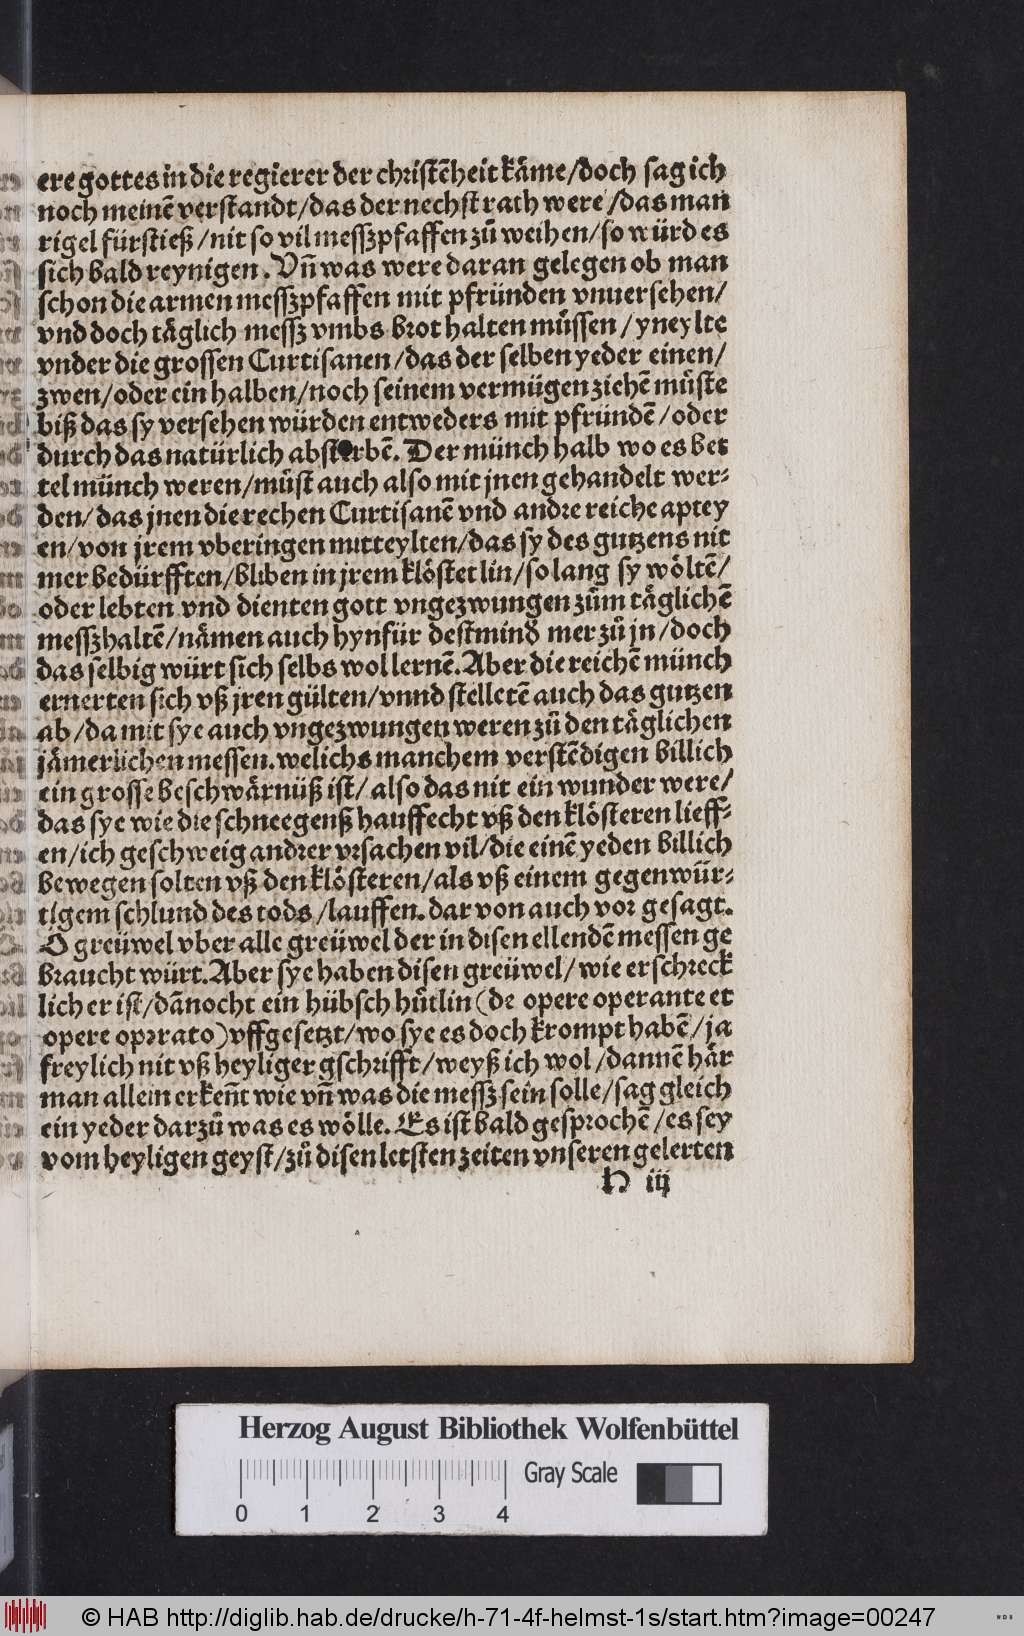 ere gottes in die regierer der christēheit käme/doch sag ich
noch meinē verstandt/das der nechst rath were/das man
rigel fürstieß/nit so vil messzpfaffen zů weihen/so würd es
sich bald reynigen. Vn̄ was were daran gelegen ob man
schon die armen messzpfaffen mit pfründen vnuersehen/
vnd doch täglich messz vmbs brot halten müssen/yneylte
vnder die grossen Curtisanen/das der selben yeder einen/
zwen/oder ein halben/noch seinem vermügen ziehē müste
biß das sy versehen würden entweders mit pfrundē/oder
durch das natürlich absterbē. Der münch halb wo es bet
tel münch weren/müst auch also mit jnen gehandelt wer⸗
den/das jnen die rechen Curtisanē vnd andre reiche aptey
en/von jrem vberingen mitteylten/das sy des gutzens nit
mer bedürfften/bliben in jrem klöstetlin/so lang sy wöltē/
oder lebten vnd dienten gott vngezwungen zům täglichē
messzhaltē/nämen auch hynfür destmind mer zů jn/doch
das selbig würt sich selbs wol lernē. Aber die reichē münch
ernerten sich vß jren gülten/vnnd stelletē auch das gutzen
ab/da mit sye auch vngezwungen weren zů den täglichen
jämerlichen messen. welichs manchem verstēdigen billich
ein grosse beschwärnüß ist/also das nit ein wunder were/
das sye wie die schneegenß hauffecht vß den klösteren lieff⸗
en/ich geschweig andrer vrsachen vil/die einē yeden billich
bewegen solten vß den klösteren/als vß einem gegenwür⸗
tigem schlund des tods/lauffen. dar von auch vor gesagt.
O greüwel vber alle greüwel der in disen ellendē messen ge
braucht würt. Aber sye haben disen greüwel/wie erschreck
lich er ist/dānocht ein hübsch hůtlin (de opere operante et
opere operato) vffgesetzt/wo sye es doch krompt habē/ja
freylich nit vß heyliger gschrifft/weyß ich wol/dannē här
man allein erken̄t wie vn̄ was die messz sein solle/sag gleich
ein yeder darzů was es wölle. Es ist bald gesprochē/es sey
vom heyligen geyst/zů disen letsten zeiten vnseren gelerten
H iij
Herzog August Bibliothek Wolfenbüttel
0 1 2 3 4 Gray Scale
© HAB http://diglib.hab.de/drucke/h-71-4f-helmst-1s/start.htm?image=00247